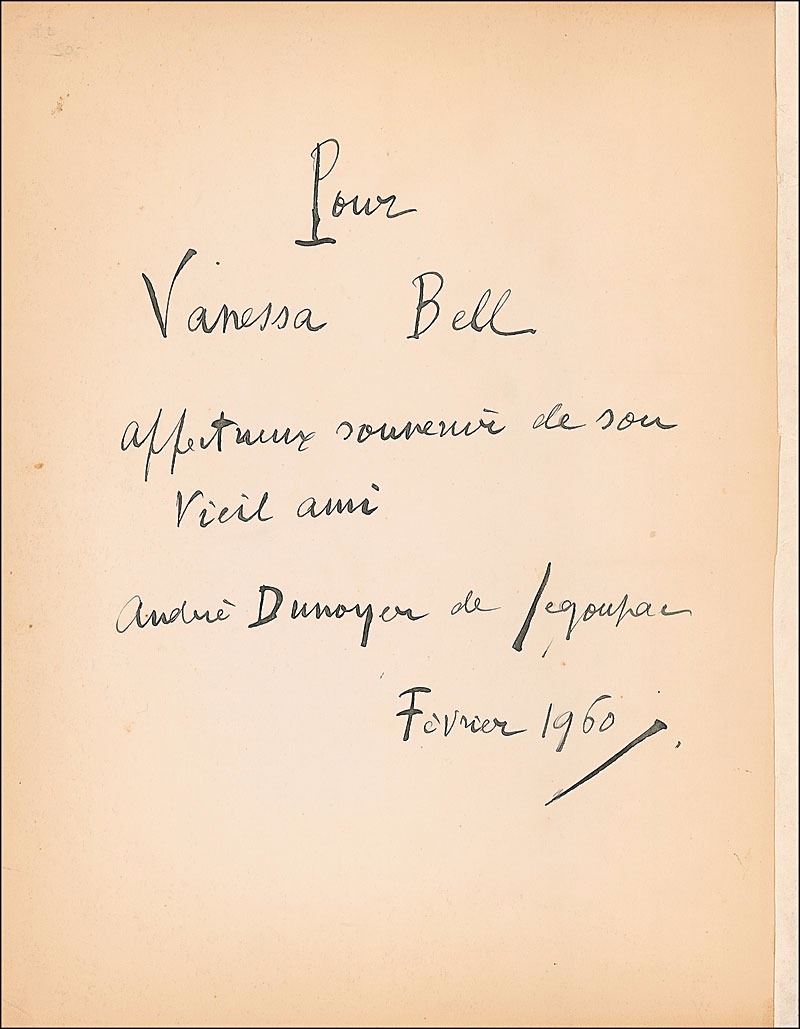 Pour
Vanessa Bell
affectueux souvenir de son
vieil ami
André Dunoyer de Segonzac
Février 1960